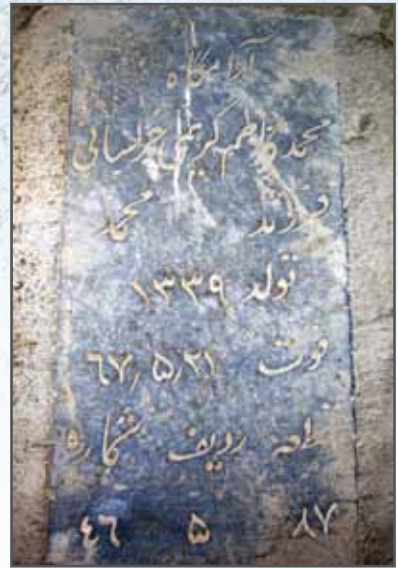 آرامگاه
محمد کاظم کریمی خراسانی
فرزند محمد
تولد ۱۳۳۹
فوت ۶۷٫۵٫۲۱
قطعه ردیف شماره
۸۷ ۵ ۴۶